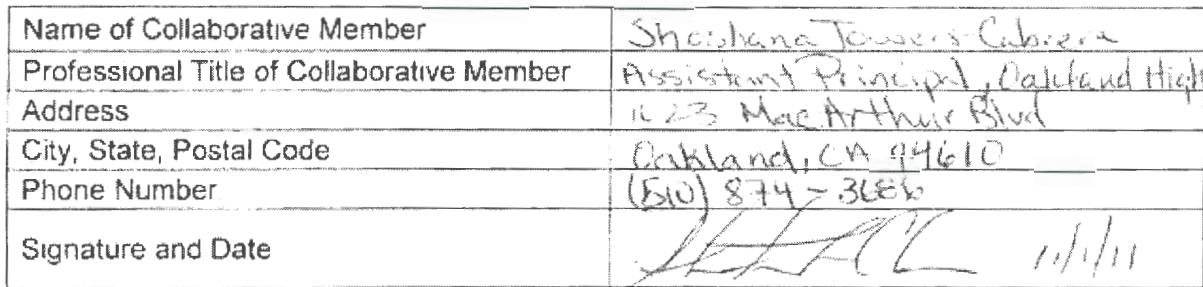 Name of Collaborative Member Shoshana Towers-Cabrera
Professional Title of Collaborative Member Assistant Principal, Oakland High
Address 1023 MacArthur Blvd
City, State, Postal Code Oakland, CA 94610
Phone Number (510) 874-3686
Signature and Date 11/1/11